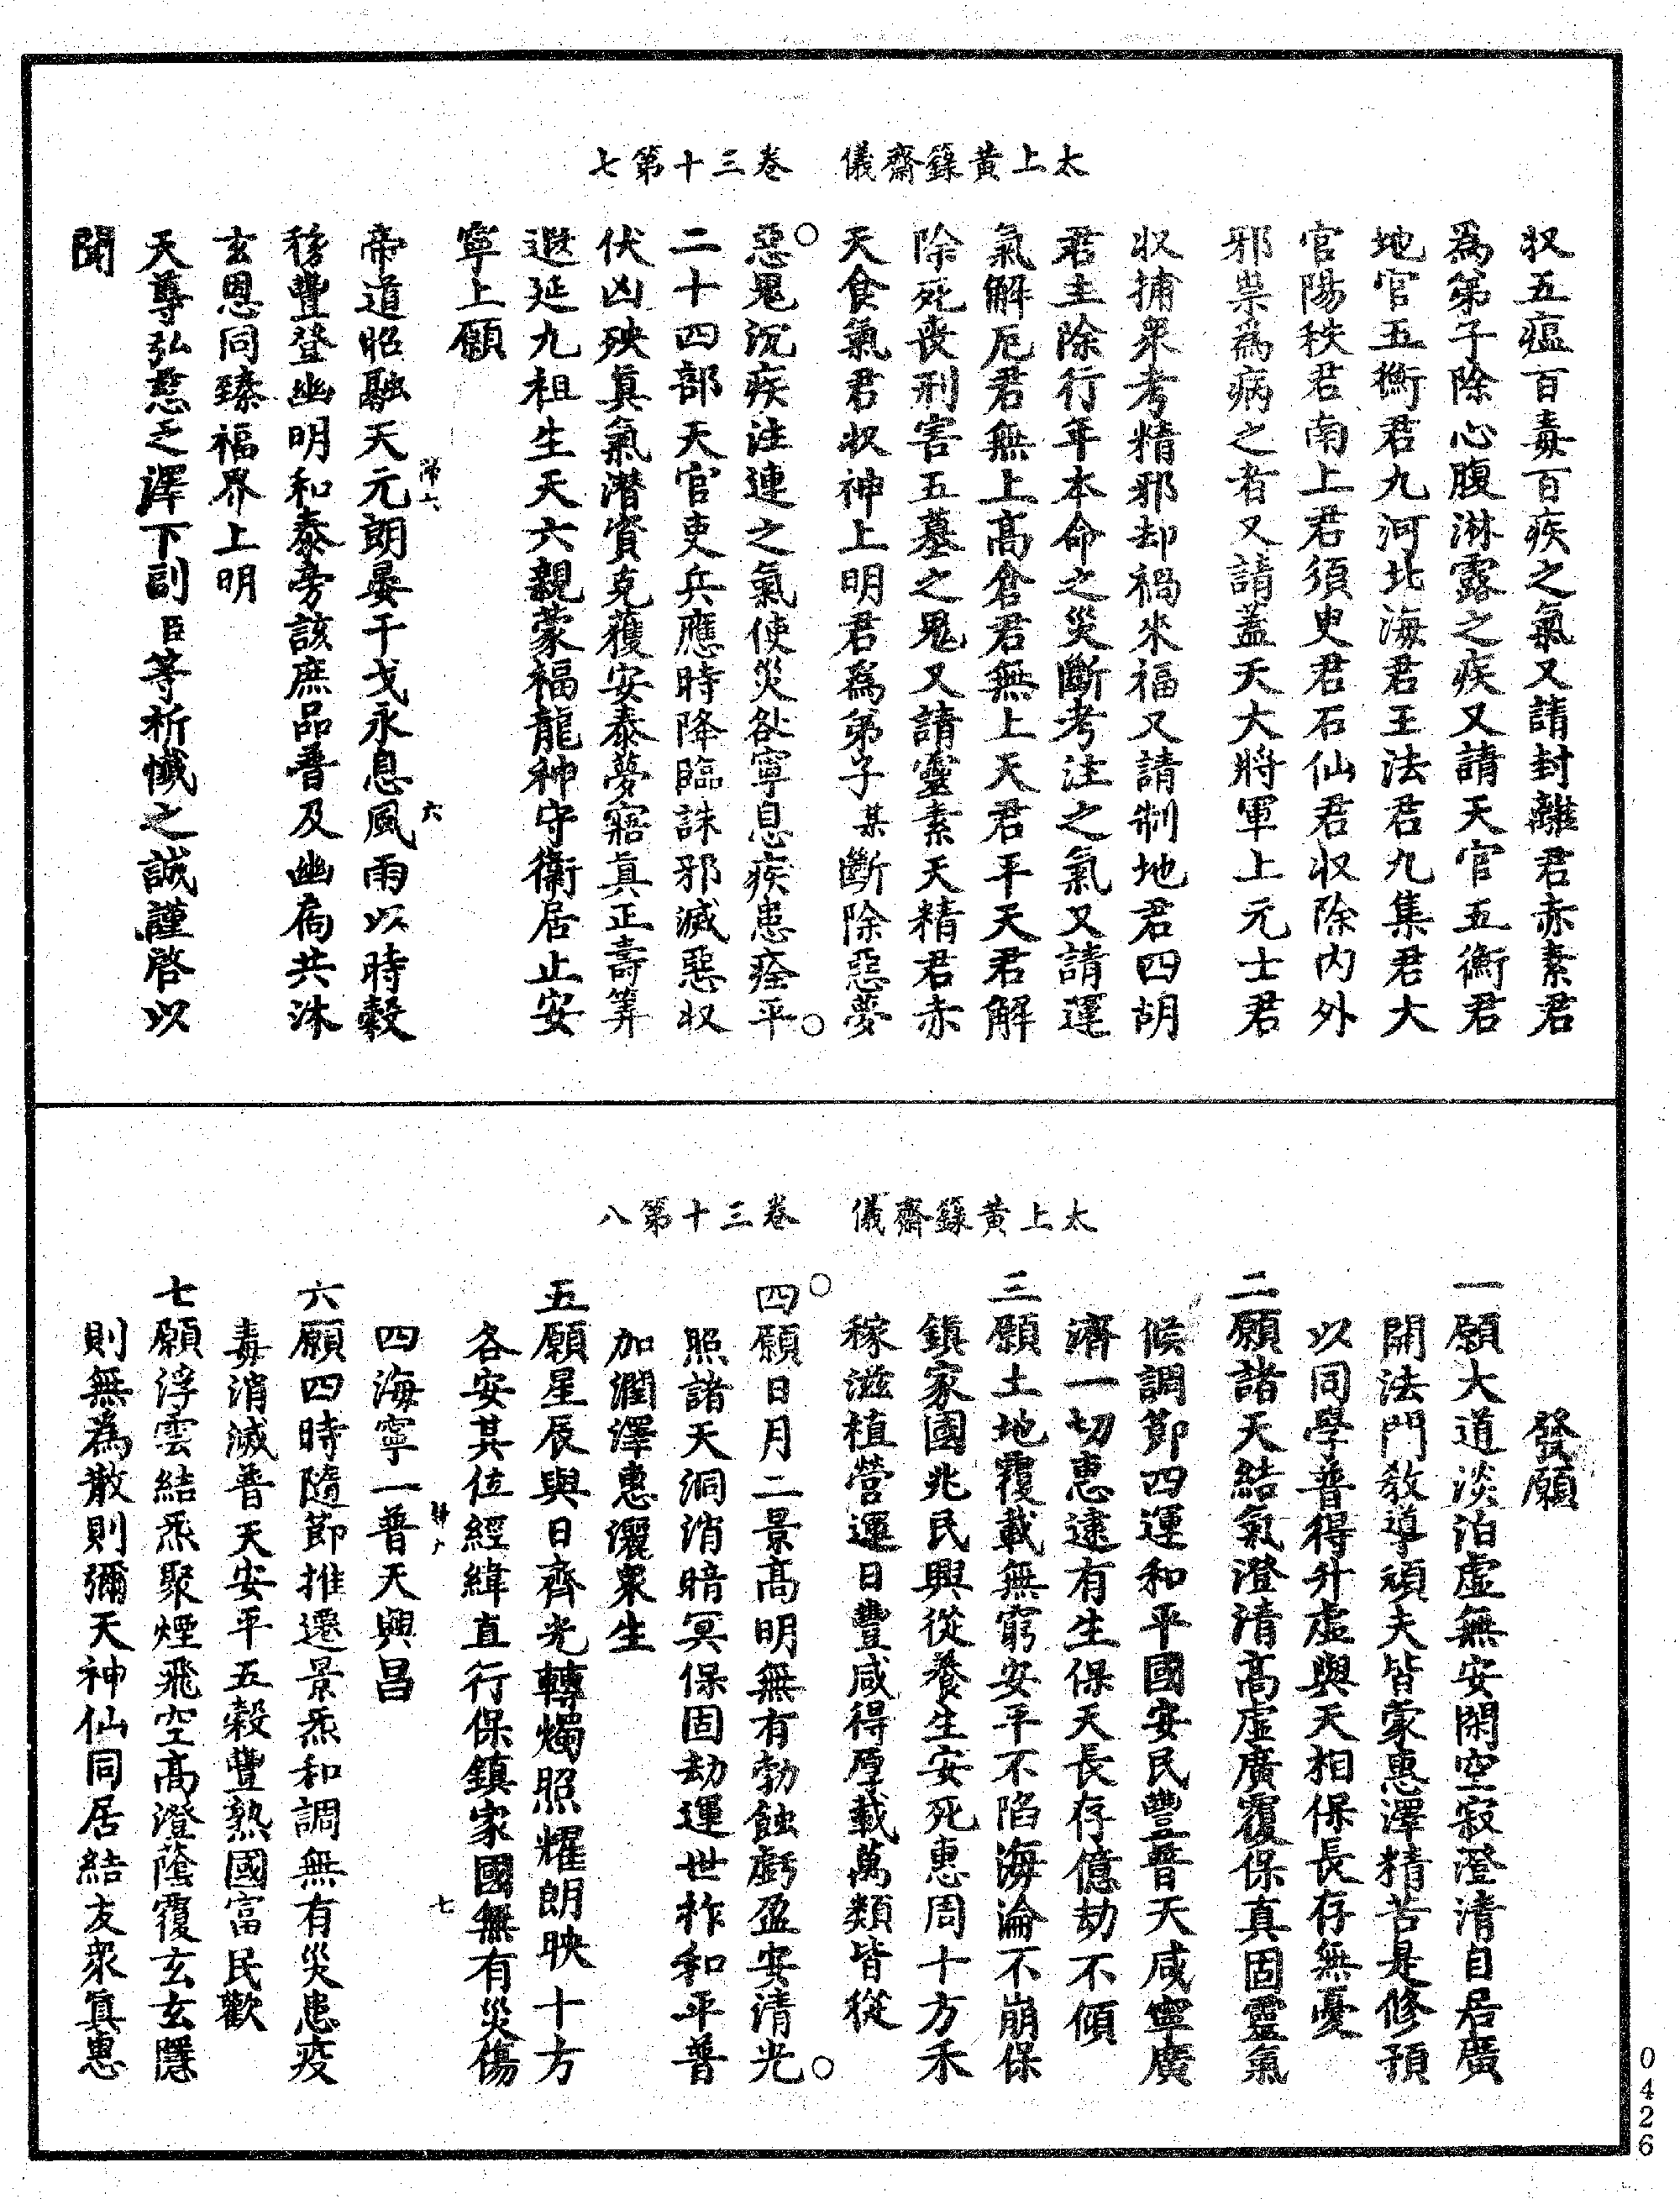 太上黃籙齋儀　卷三十第七
収五瘟百毒百疾之氣又請封離君赤素君
為第子除心腹淋露之疾又請天官五衡君
地官五衡君九河北海君王法君九集君大
官陽秩君南上君須史君石仙君収除内外
邪祟為病之者又請蓋天大將軍上元士君
収捕衆考精邪却禍来福又請制地君四胡
君主除行年本命之災斷考注之氣又請運
氣解厄君無上高倉君無上天君平天君解
除死喪刑害五墓之鬼又請靈素天精君赤
天食氣君収神上明君為弟子某斷除惡夢
惡鬼沉疾注連之氣使災咎寧息疾患痊平
二十四部天官吏兵應時降臨誅邪滅惡収
伏凶殃真氣潛資克獲安泰夢寤真正壽筭
遐延九祖生天六親蒙福龍神守衛居止安
寧上願
帝道昭融天元朗晏干戈永息風雨以時穀
稼豐登幽明和泰旁該庶品普及幽扃共沐
玄恩同臻福界上明
天尊弘慈之澤下副臣等祈懺之誠謹啓以
聞
六
太上黃籙齋儀　卷三十第八
發願
一願大道淡泊虛無安閑空寂澄清自居廣
開法門教導頑夫皆蒙惠澤精苦是修預
以同學普得升虛與天相保長存無憂
二願諸天結氣澄清高虛廣覆保真固靈氣
候調節四運和平國安民豐普天咸寧廣
濟一切惠逮有生保天長存億劫不傾
三願土地覆載無窮安平不陷海淪不崩保
鎮家國兆民興從養生安死惠周十方禾
稼滋植營運日豐咸得厚載萬類皆從
四願日月二景高明無有勃蝕虧盈安清光
照諸天洞消暗冥保固劫運世祚和平普
加潤澤惠灑衆生
五願星辰與日齊光轉燭照耀朗映十方
各安其位經緯直行保鎮家國無有災傷
四海寧一普天興昌
六願四時隨節推遷景炁和調無有災患疫
毒消滅普天安平五穀豐熟國富民歡
七願浮雲結炁聚煙飛空高澄蔭覆玄玄隱
則無為散則彌天神仙同居結友衆真惠
七
0426